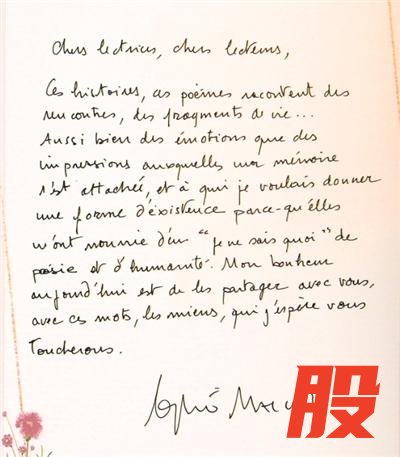 Chers lectrices, chers lecteurs,
Ces histoires, ces poèmes racontent des
rencontres, des fragments de vie...
Aussi bien des émotions que des
impressions auxquelles ma mémoire
s'est attachée, et à qui je voulais donner
une forme d'existence parce-qu'elles
m'ont nourrie d'un "je ne sais quoi" de
poésie et d'humanité. Mon bonheur
aujourd'hui est de les partager avec vous,
avec ces mots, les miens, qui j'espère vous
toucherons.
股